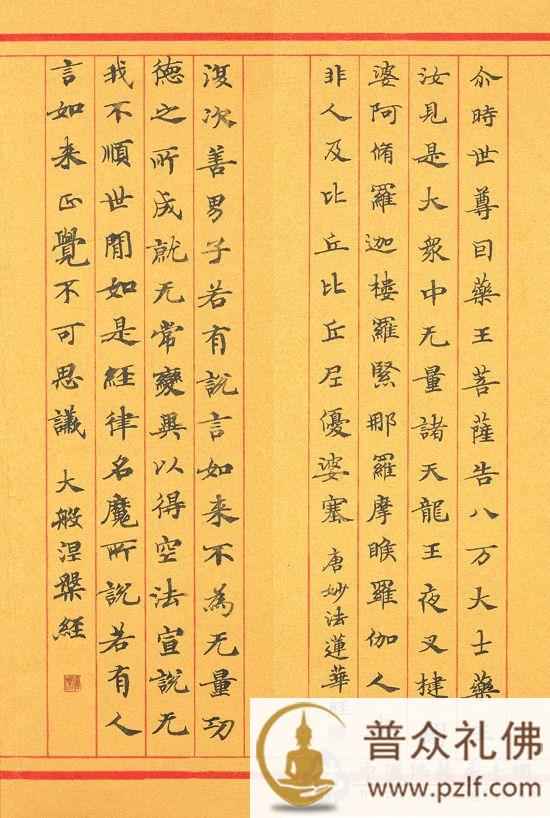 尒時世尊曰藥王菩薩告八万大士藥
汝見是大衆中无量諸天龍王夜叉揵
婆阿脩羅迦樓羅緊那羅摩睺羅伽人
非人及比丘比丘尼優婆塞 唐妙法蓮華經
復次善男子若有說言如来不為无量功
德之所成就无常變異以得空法宣說无
我不順世間如是経律名魔所說若有人
言如来正覺不可思議 大般涅槃経
普众礼佛
www.pzlf.com